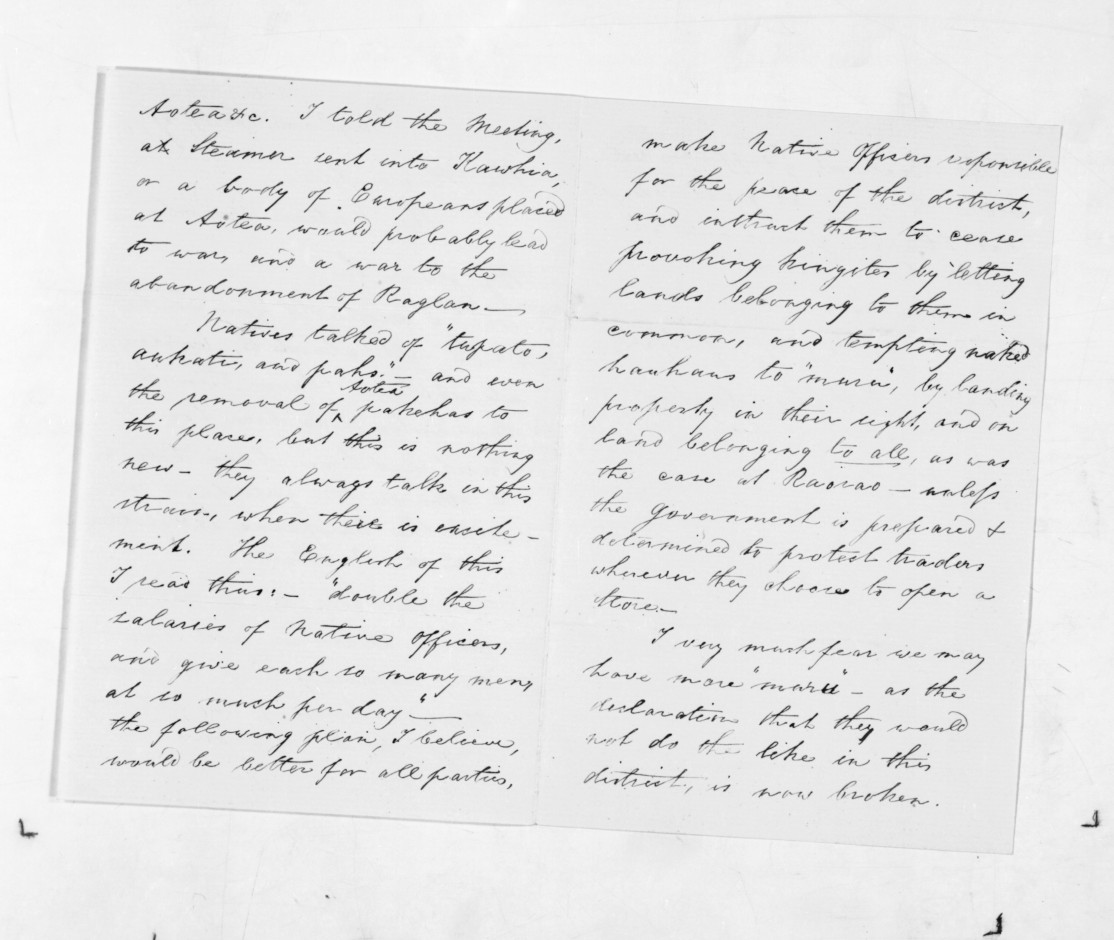 Aotea &c. I told the Meeting,
at Steamer sent into Kawhia,
or a body of Europeans placed
at Aotea, would probably lead
to war, and a war to the
abandonment of Raglan —
Natives talked of "tupato,
aukati, and pahs." — and even
the removal of Aotea pakehas to
this place, but this is nothing
new — they always talk in this
strain —, when there is excite -
ment. The English of this
I read thus: — "double the
salaries of Native Officers,
and give each so many men,
at so much per day" —
the following plan, I believe,
would be better for all parties,
make Native Officers responsible
for the peace of the district,
and instruct them to cease
provoking kingites by letting
lands belonging to them in
common, and tempting naked
hauhaus to "muru", by landing
property in their sight, and on
land belonging to all, as was
the case at Raoiao — unless
the Government is prepared &
determined to protect traders
wherever they choose to open a
store —
I very much fear we may
have more "muru" — as the
declaration that they would
not do the like in this
district, is now broken.